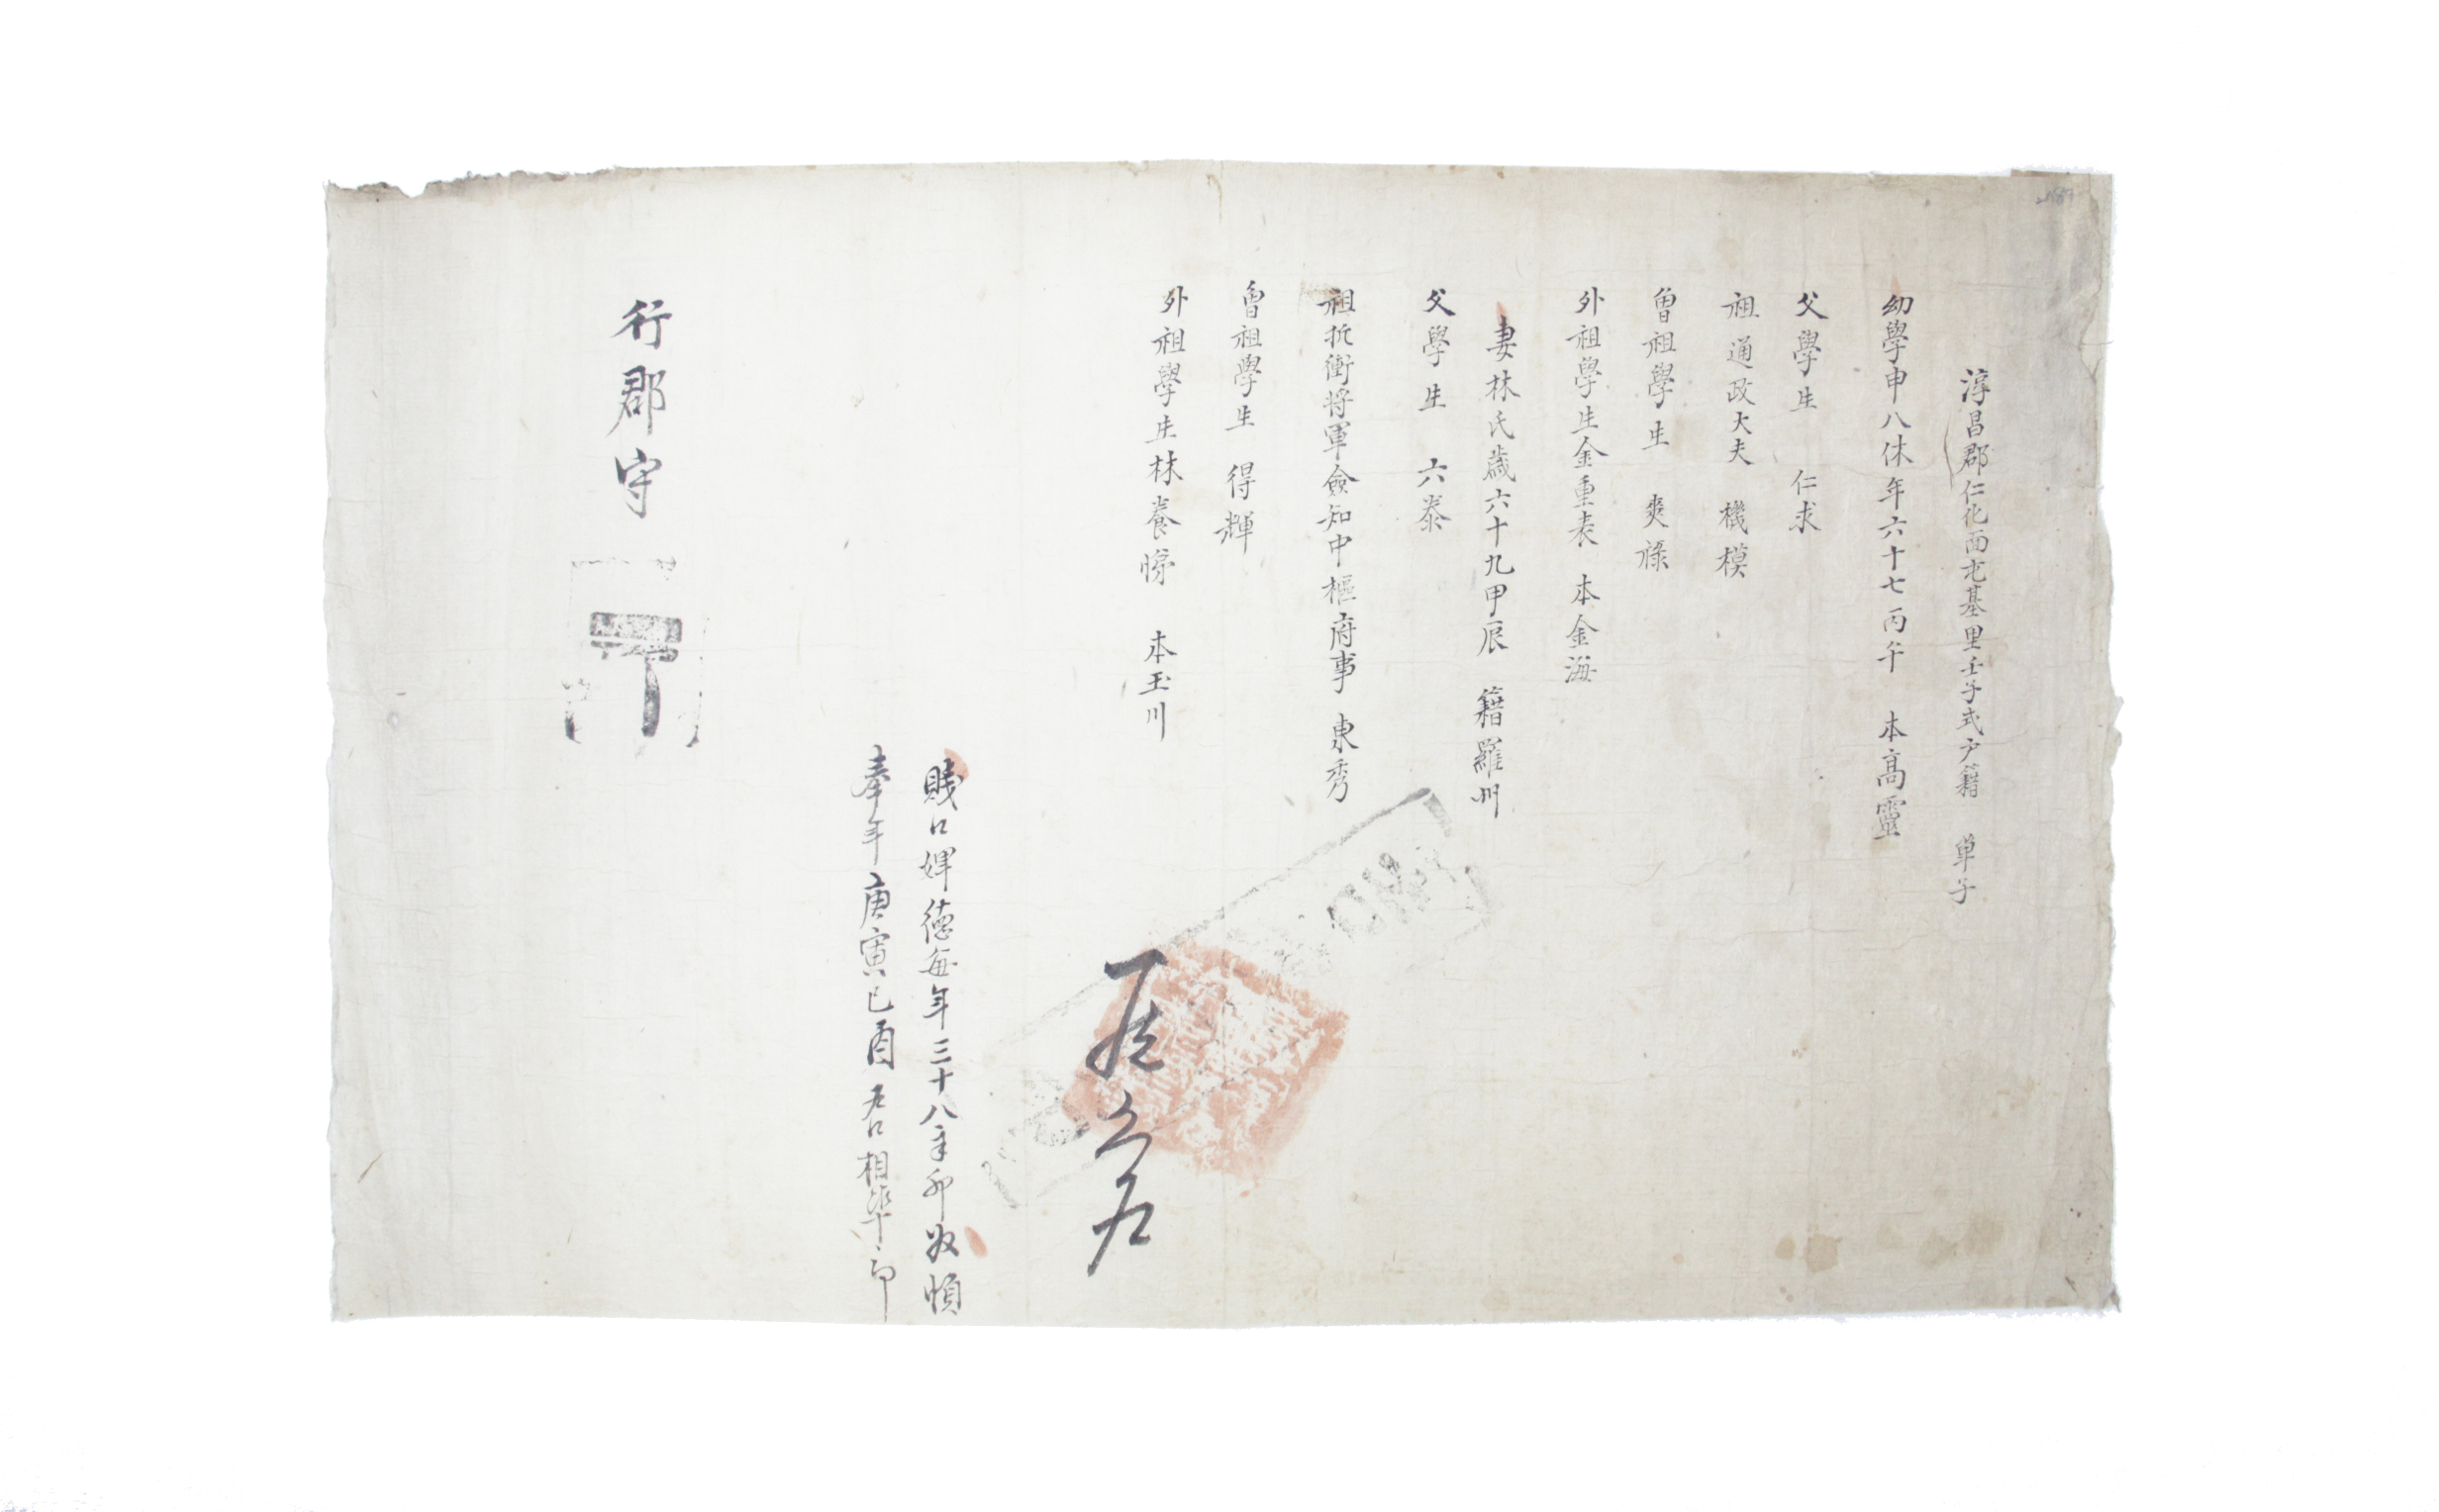 淳昌郡仁化面屯基里壬子式户籍 單子
幼學申八休年六十七丙午 本高靈
父學生 仁求
祖通政大夫 機模
曾祖學生 爽祿
外祖學生金重表 本金海
妻林氏歲六十九甲辰 籍羅州
父學生 六泰
祖折衝将軍僉知中樞府事 東秀
曾祖學生 得輝
外祖學生林養 本玉川
賤口婢德每年三十八辛卯奴順
奉年庚寅己酉戶口相準印
行郡守